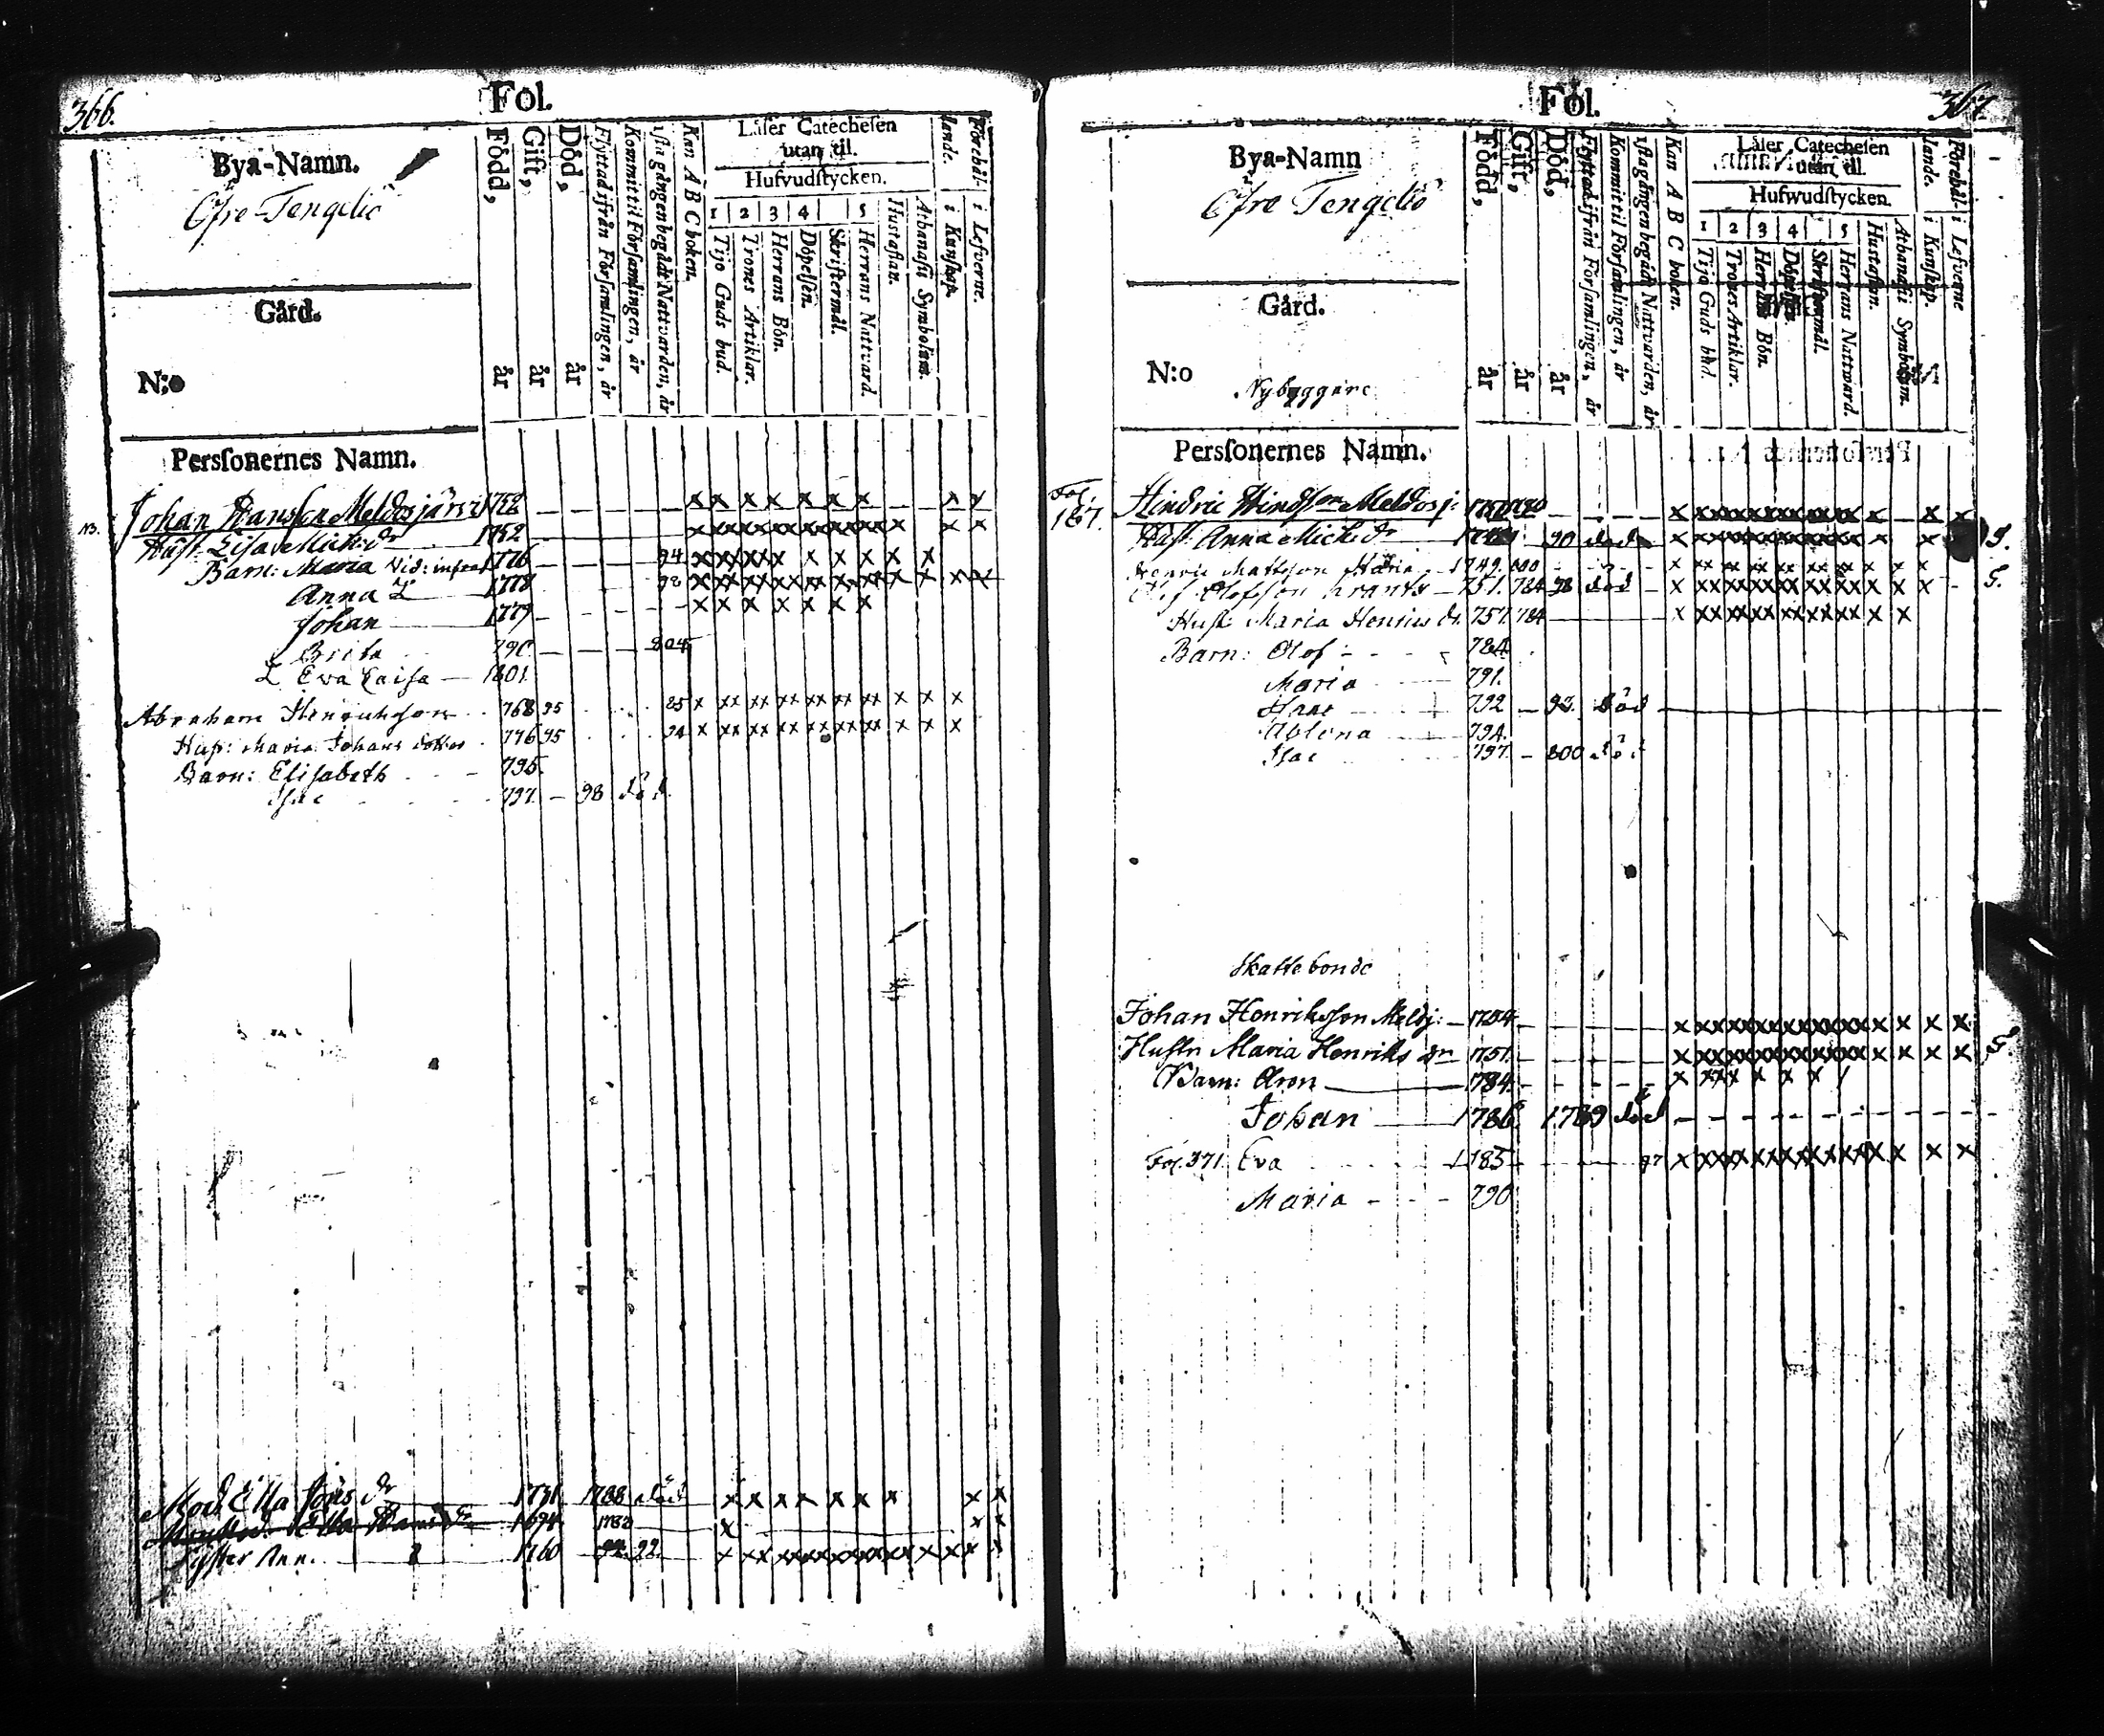 366.
Fol.
Bya-Namn.
Öfre-Tengeliö
Gård.
N:o
Född, år
Gift, år
Död, år
Flyttad ifrån Församlingen, år
Kommit til Församlingen, år
1sta gången begådt Nattvarden, år
Kan A B C boken.
Läser Catechesen
utan til.
Hufvudstycken.
1 2 3 4 5
Tijo Guds bud.
Trones Artiklar.
Herrans Bön.
Döpelsen.
Skriftermål.
Herrans Nattvard.
Hustaflan.
Athanasii Symbolum.
Förehållande.
i Kunskap.
i Lefverne.
Personernes Namn.
Johan Hansson Meldosjärvi 1752 — — — — — x x x x x x x — — x x
Hust. Lisa Mich: dr 1752
Barn: Maria Vid: infra 1776 94
Anna 1778 98
Johan 1779 x x x x x x x
Brita 790 — — — 804
Eva Caisa — 1801.
Abraham Henrichsson 768 95 85
Hust: Maria Johans dotter 776 95 94
Barn: Elisabeth 795.
Isac 797. — 98 död
Mod. Ella Jöns dr 1731 1788 död
1694
Syster Ann. 1760 92
Fol.
367
Bya-Namn
Öfre Tengeliö
Gård.
N:o
Nybyggare
Född, år
Gift, år
Död, år
Flyttad ifrån Församlingen, år
Kommit til Församlingen, år
1sta gången begådt Nattvarden, år
Kan A B C boken.
Läser Catechesen
utan til.
Hufwudstycken.
1 2 3 4 5
Tijo Guds bud.
Trones Artiklar.
Herrans Bön.
Döpelsen.
Skriftermål.
Herrans Nattward.
Hustaflan.
Athanasii Symbolum.
Förehållande.
i Kunskap.
i Lefverne
Personernes Namn.
Fol. 187. Hindric Hindsson Meldosj:
Hust. Anna Mich: dr 90 död
Henric Mattsson 1749. 800
Olofsson Krants — 751. 784 98 död
Hust: Maria Henrics dr. 757. 784
Barn: Olof 784
Maria 791.
Hans 792 — 92. död
Ablona 794.
Isac 797. — 800 död
Skattebonde
Johan Henriksson Meldj: — 1754
Hustr Maria Henriks dr 1751
Barn: Aron 1784
Johan 1786 1789 död
Fol. 371. Eva 1785 97
Maria 790